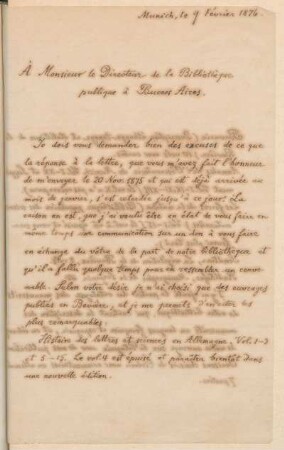 Munich, le 9 Février 1876.
À Monsieur le Directeur de la Bibliothèque
publique à Buenos Aires.
Je dois vous demander bien des excuses de ce que
la réponse à la lettre, que vous m'avez fait l'honneur
de m'envoyer le 20 Nov. 1875 et qui est déjà arrivée au
mois de janvier, s'est retardée jusqu'à ce jour. La
raison en est, que j'ai voulu être en état de vous faire en
même temps une communication sur un don à vous faire
en échange du vôtre de la part de notre bibliothèque et
qu'il a fallu quelque temps pour en rassembler un conve-
nable. Selon votre désir je n'ai choisi que des ouvrages
publiés en Bavière, et je me permets d'en noter les
plus remarquables.
Histoire des lettres et sciences en Allemagne. Vol. 1-3
et 5-15. Le vol. 4 est épuisé et paraîtra bientôt dans
une nouvelle édition.